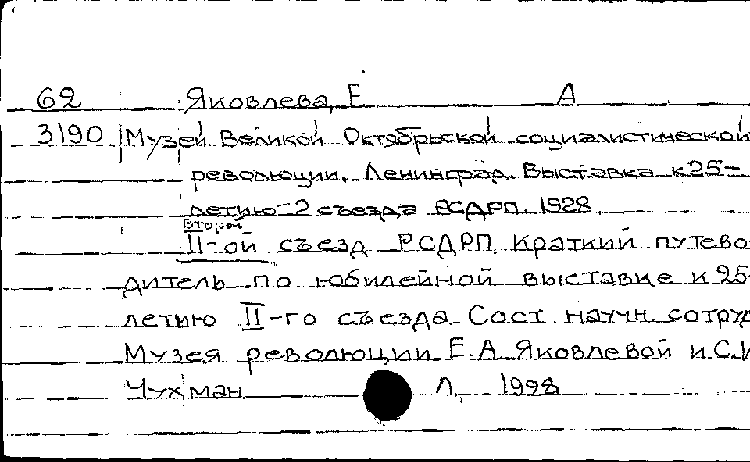 62 Яковлева, Е А
3190 Музей Великой Октябрьской социалистической
революции. Ленинград. Выставка к 25-
летию 2 съезда РСДРП. 1928
Второй
II-ой съезд РСДРП. Краткий путево
дитель по юбилейной выставке к 25-
летию II-го съезда. Сост. научн. сотруд
Музея революции Е. А. Яковлевой и С.И
Чухман Л., 1928